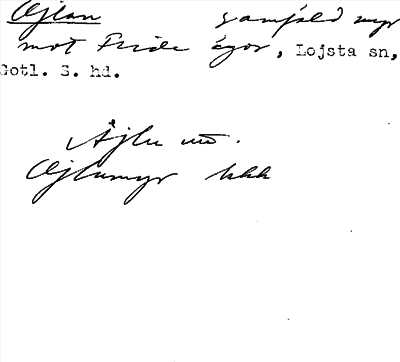 Ajlan samfäld myr
mot Fride ägor, Lojsta sn,
Gotl. S. hd.
Ajlu
Ajlumyr hkk